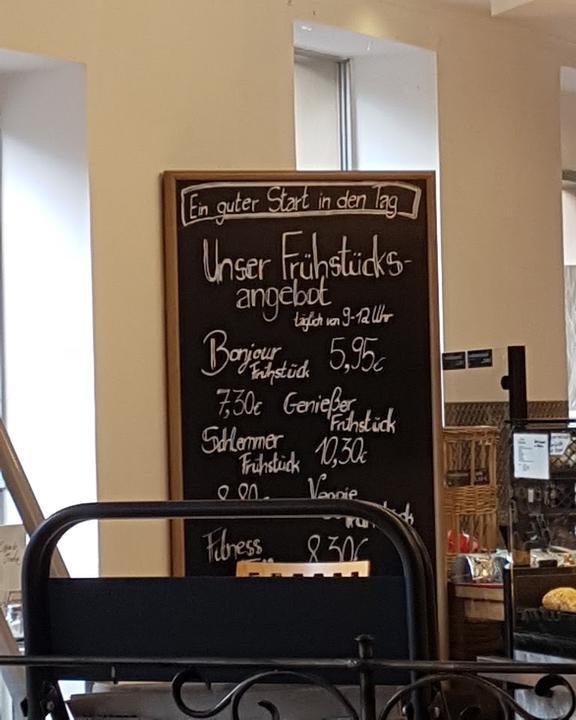 Ein guter Start in den Tag
Unser Frühstücks-
angebot
täglich von 9-12 Uhr
Bonjour 5,95€
Frühstück
7,30€ Genießer
Frühstück
Schlemmer 10,30€
Frühstück
8,80€ Veggie
Fitness 8,30€